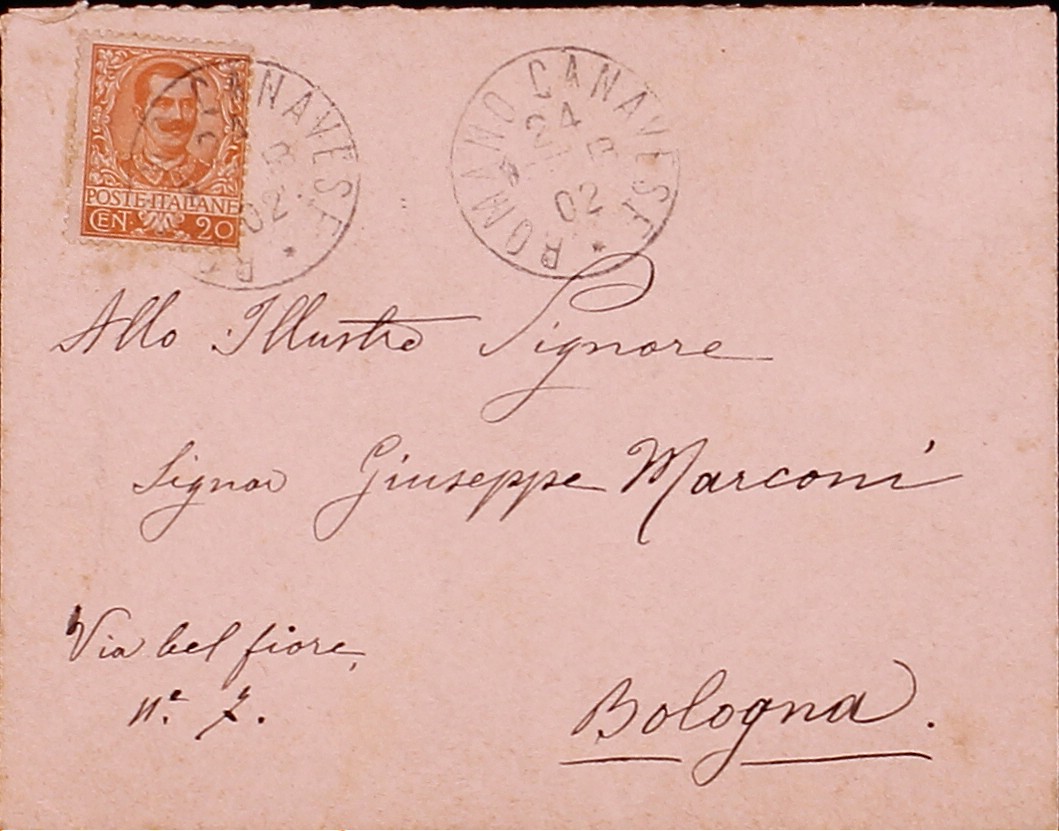 POSTE·ITALIANE
CEN. 20
ROMANO CANAVESE
24
02
Allo Illustre Signore
Signor Giuseppe Marconi
Via bel fiore,
n.e 7.
Bologna.